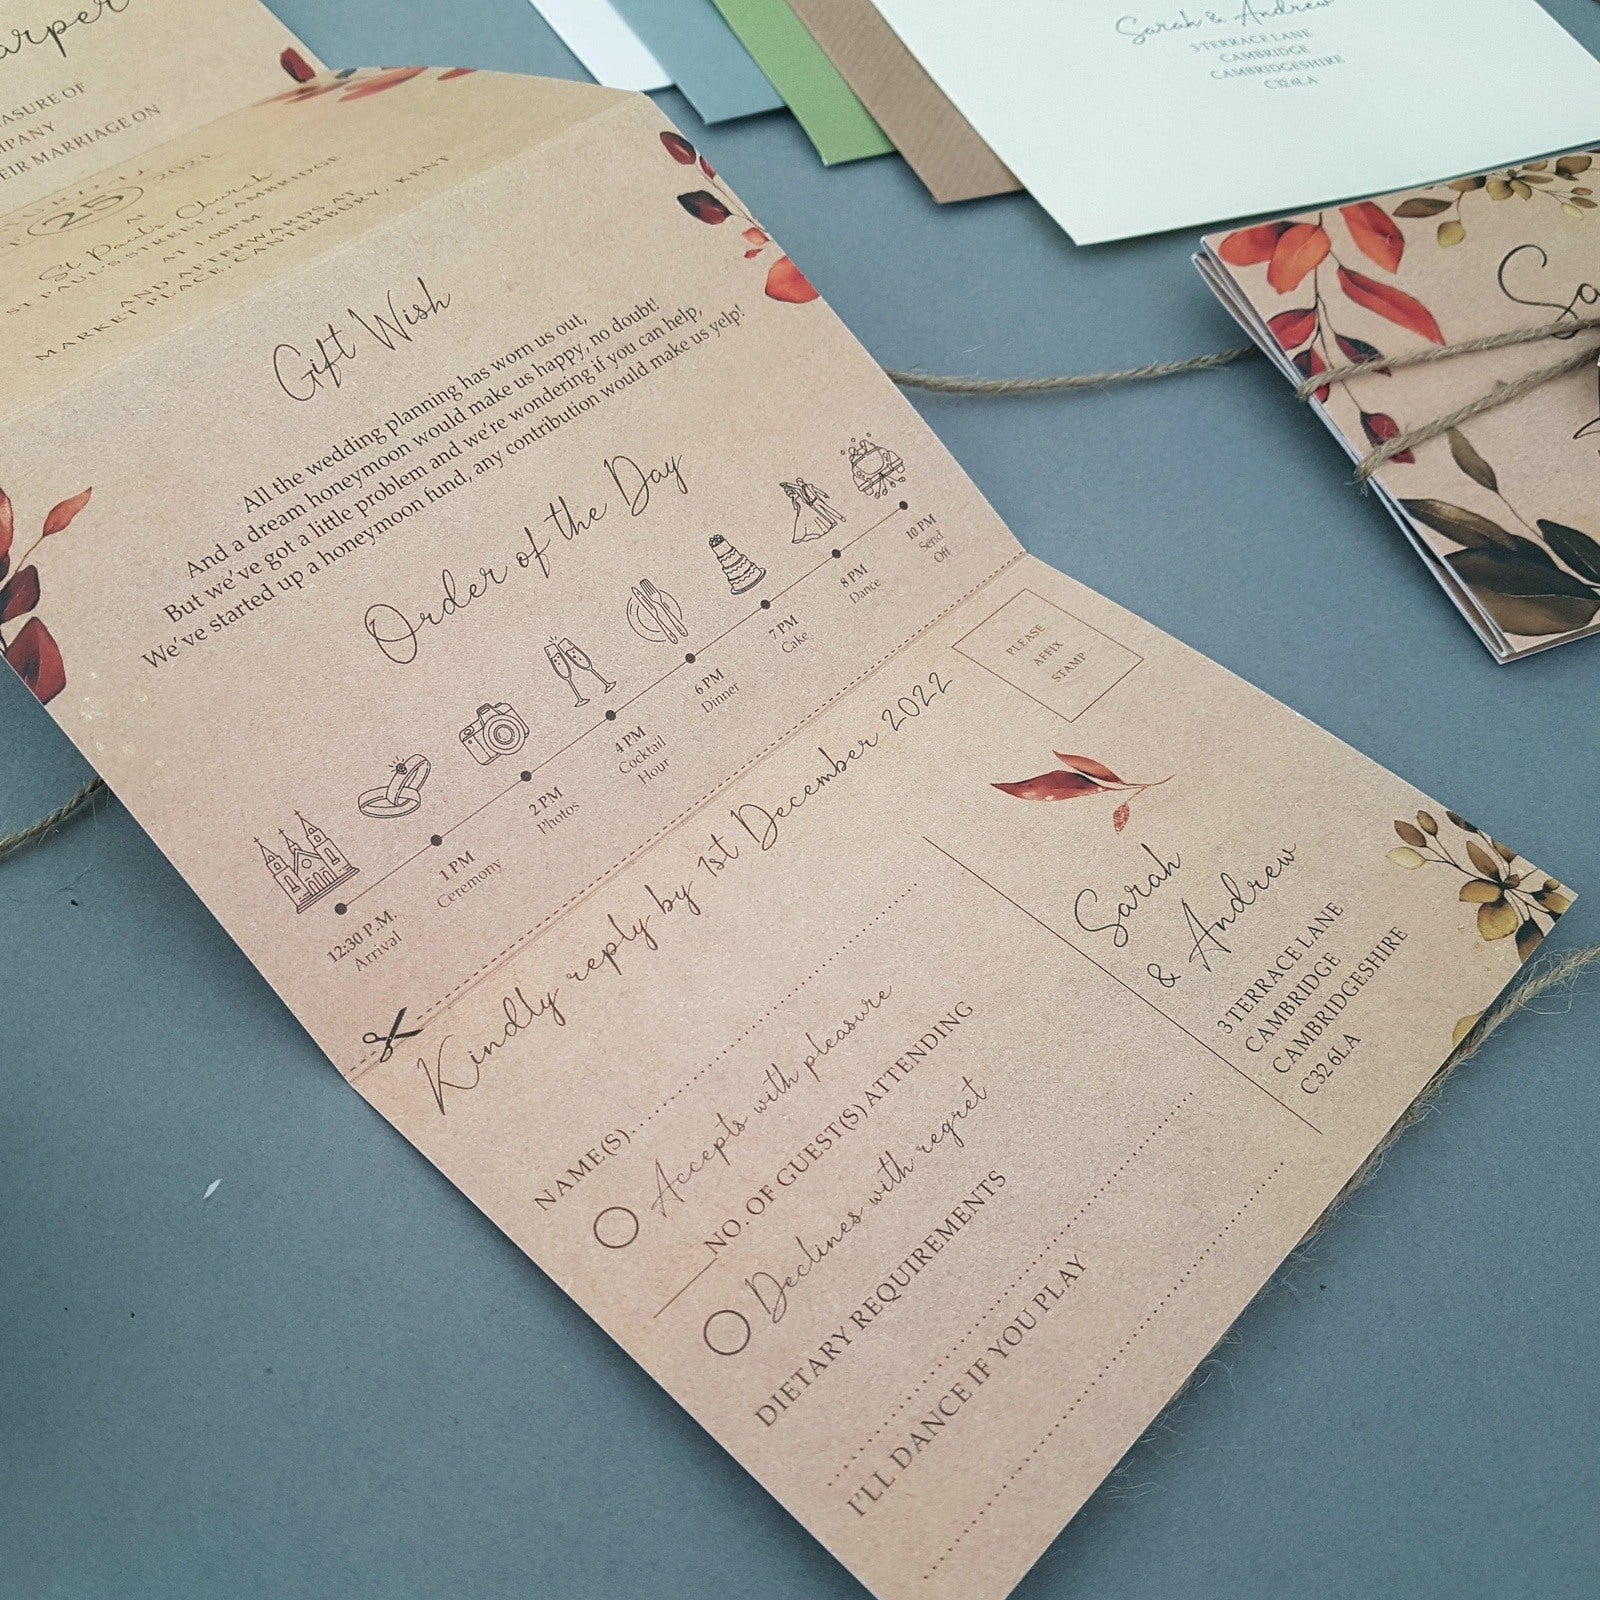 ASURE OF
MPANY
EIR MARRIAGE ON
25
2021
AT
St Pauls Church
ST PAUL'S STREET, CAMBRIDGE
AT 1.00PM
AND AFTERWARDS AT
MARKET PLACE, CANTERBURY, KENT
Gift Wish
All the wedding planning has worn us out,
And a dream honeymoon would make us happy, no doubt!
But we've got a little problem and we're wondering if you can help,
We've started up a honeymoon fund, any contribution would make us yelp!
Order of the Day
12:30 P.M.
Arrival
1 PM
Ceremony
2 PM
Photos
4 PM
Cocktail
Hour
6 PM
Dinner
7 PM
Cake
8 PM
Dance
10 PM
Send
Off
Kindly reply by 1st December 2022
NAME(S)
Accepts with pleasure
NO. OF GUEST(S) ATTENDING
Declines with regret
DIETARY REQUIREMENTS
I'LL DANCE IF YOU PLAY
PLEASE
AFFIX
STAMP
Sarah
& Andrew
3 TERRACE LANE
CAMBRIDGE
CAMBRIDGESHIRE
C32 6LA
Sarah & Andrew
3 TERRACE LANE
CAMBRIDGE
CAMBRIDGESHIRE
C32 6LA
Sa